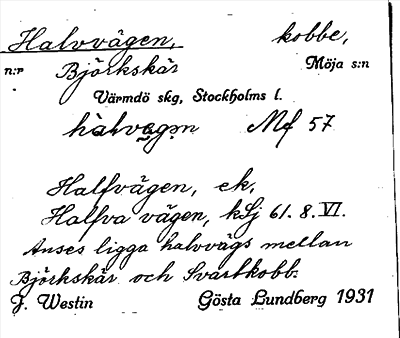 Halvvägen, kobbe,
n:r Björkskär Möja s:n
Värmdö skg, Stockholms l.
hàlvægɷn Mf 57
Halfvägen, ek,
Halfva vägen, kSj 61. 8. VI.
Anses ligga halvvägs mellan
Björkskär och Svartkobb.
J. Westin Gösta Lundberg 1931